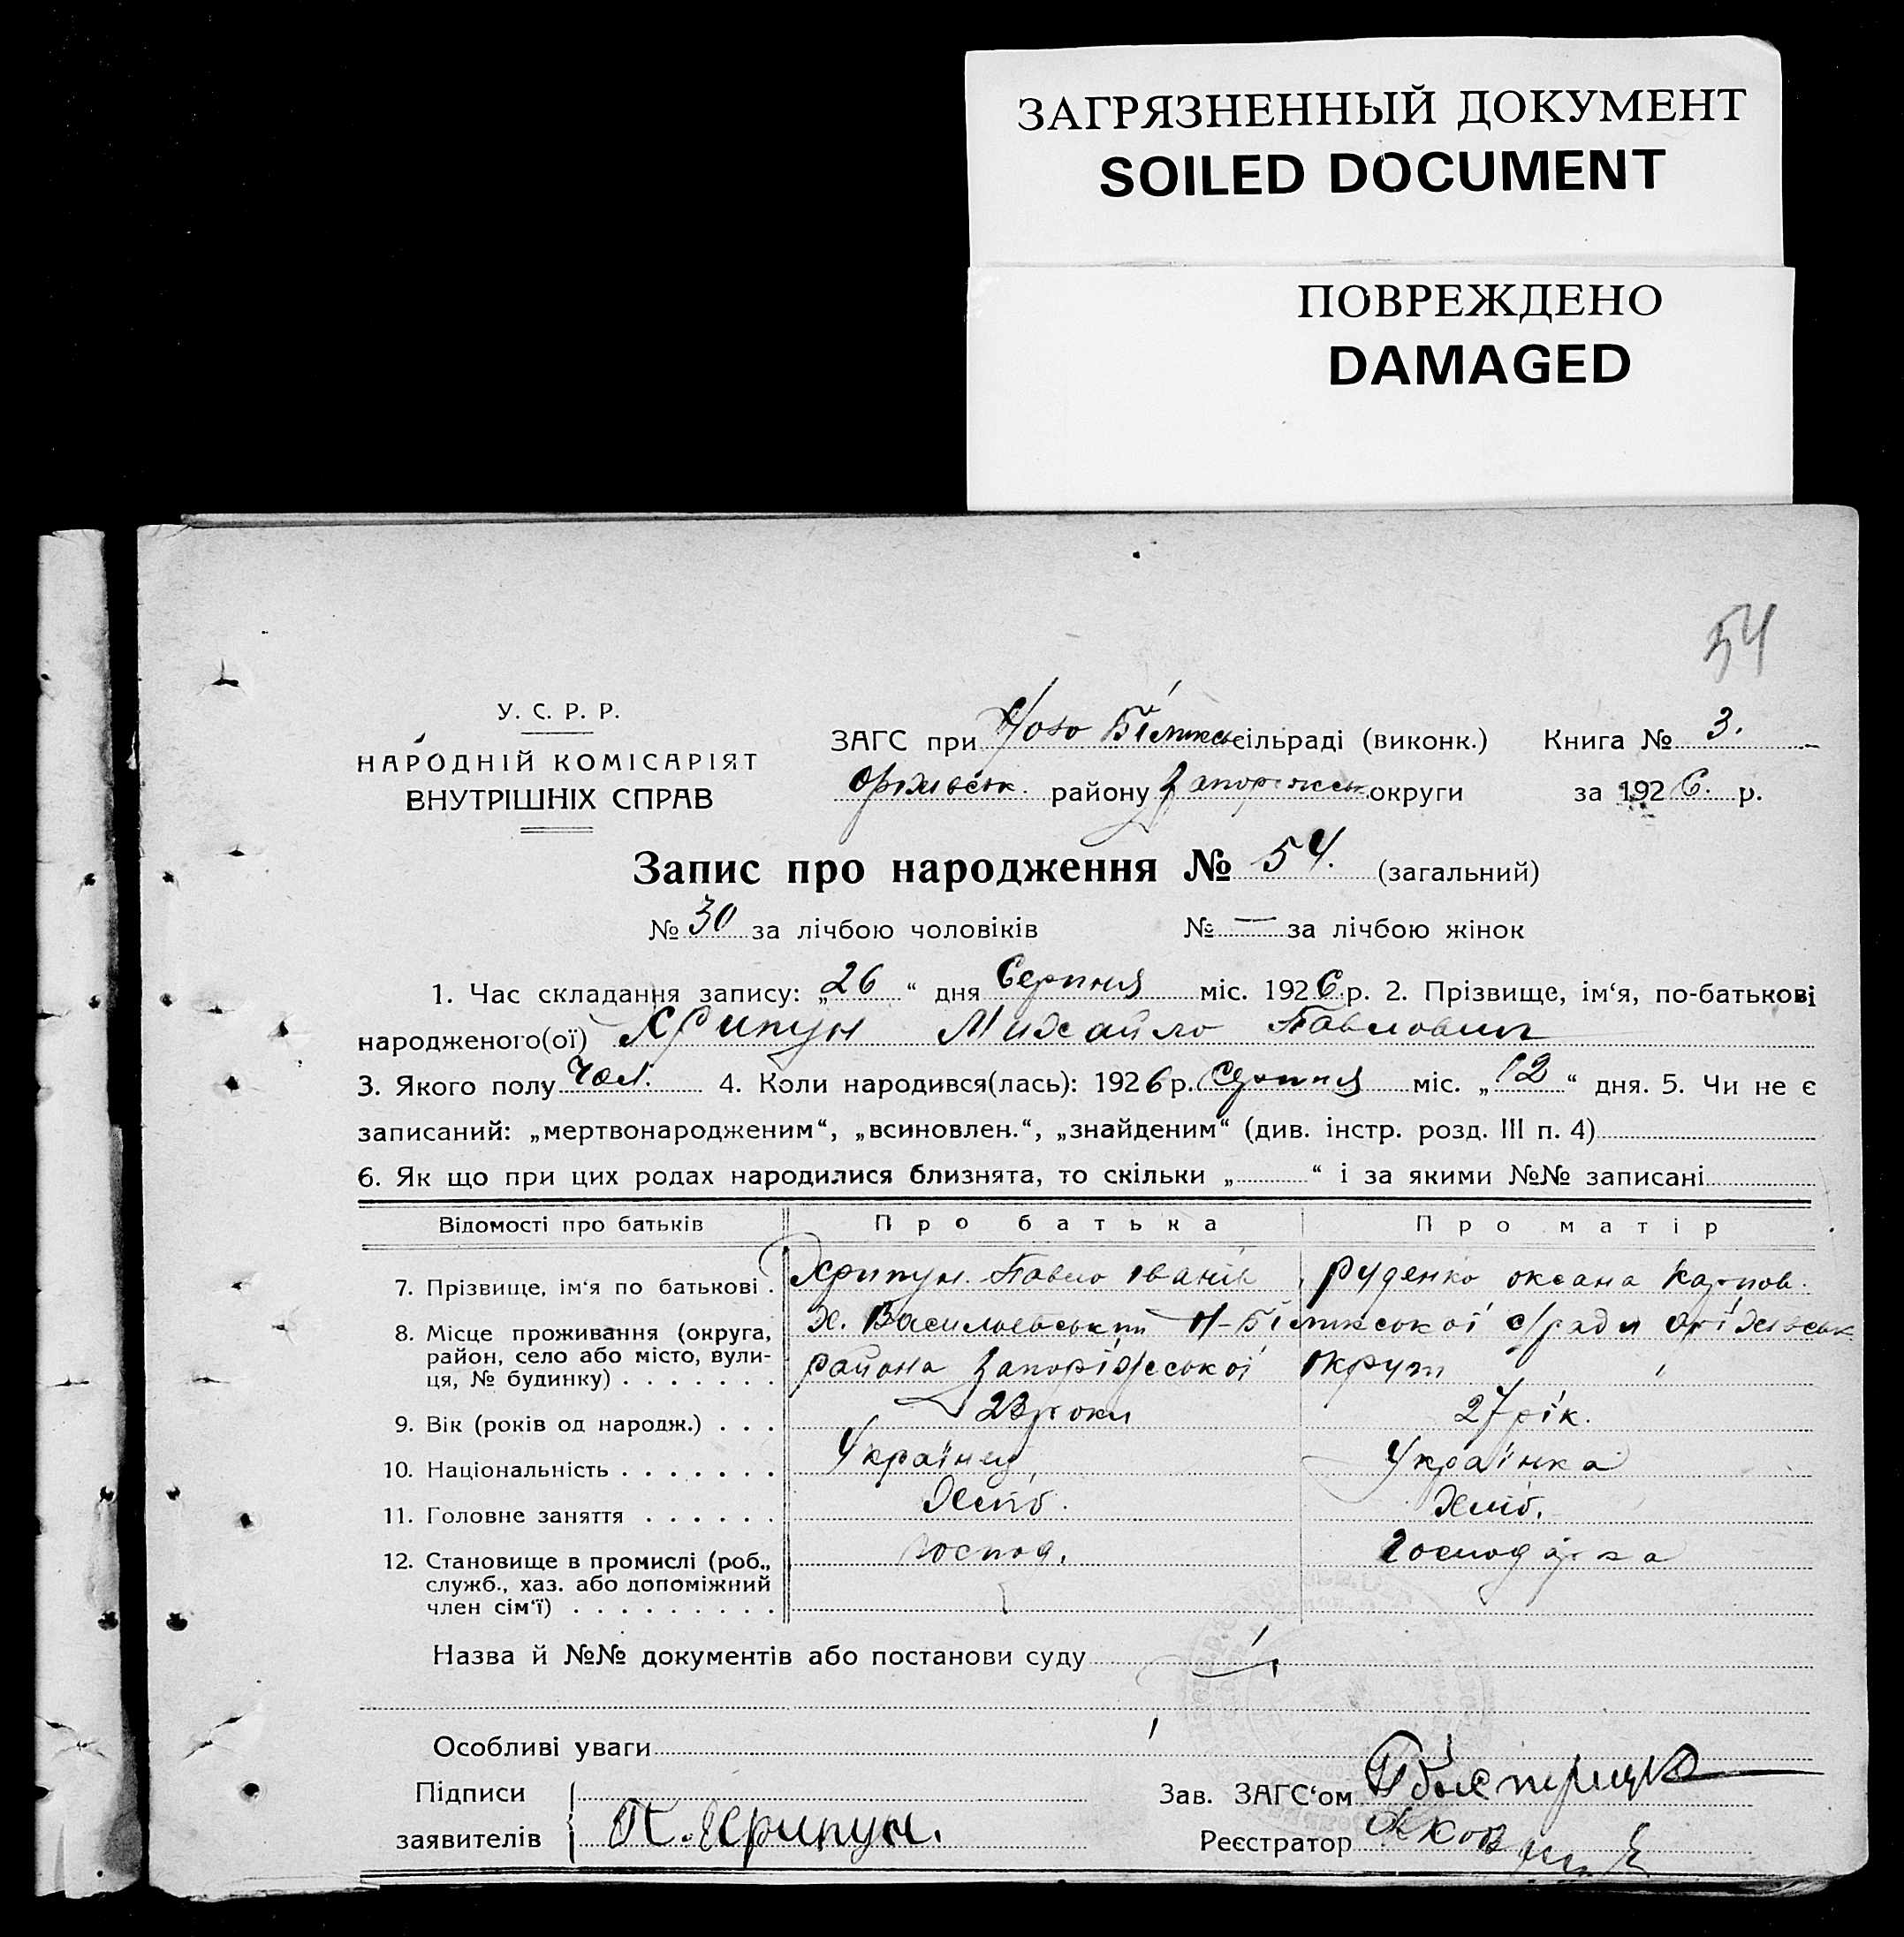 ЗАГРЯЗНЕННЫЙ ДОКУМЕНТ
SOILED DOCUMENT
ПОВРЕЖДЕНО
DAMAGED
54
У. С. Р. Р.
НАРОДНІЙ КОМІСАРІЯТ
ВНУТРІШНІХ СПРАВ
ЗАГС при Ново сільраді (виконк.) Книга № 3.
району округи за 1926. р.
Запис про народження № 54. (загальний)
№ 30 за лічбою чоловіків № — за лічбою жінок
1. Час складання запису: „26“ дня Серпня міс. 1926 р. 2. Прізвище, ім‘я, по-батькові
народженого(ої) Хрипун Михайло Павлович
3. Якого полу Чол. 4. Коли народився(лась): 1926 р. серпня міс. „12“ дня. 5. Чи не є
записаний: „мертвонародженим“, „всиновлен.“, „знайденим“ (див. інстр. розд. III п. 4)
6. Як що при цих родах народилися близнята, то скільки „ “ і за якими №№ записані
Відомості про батьків Про батька Про матір
7. Прізвище, ім‘я по батькові . Хрипун Павло Іванів Руденко Оксана Карпов.
8. Місце проживання (округа, Х. Васильевський Н-
район, село або місто, вули-
ця, № будинку) . . . . . . . района Запоріжської округи
9. Вік (років од народж.) . . . 23 роки 27 рік.
10. Національність . . . . . . . Українец Українка
11. Головне заняття . . . . . . Хліб. Хліб.
12. Становище в промислі (роб., господ. Господарка
служб., хаз. або допоміжний
член сім‘ї) . . . . . . . . .
Назва й №№ документів або постанови суду
Особливі уваги
Підписи
заявителів П. Хрипун.
Зав. ЗАГС‘ом
Реєстратор